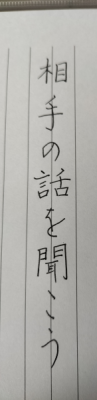 相手の話を聞こう